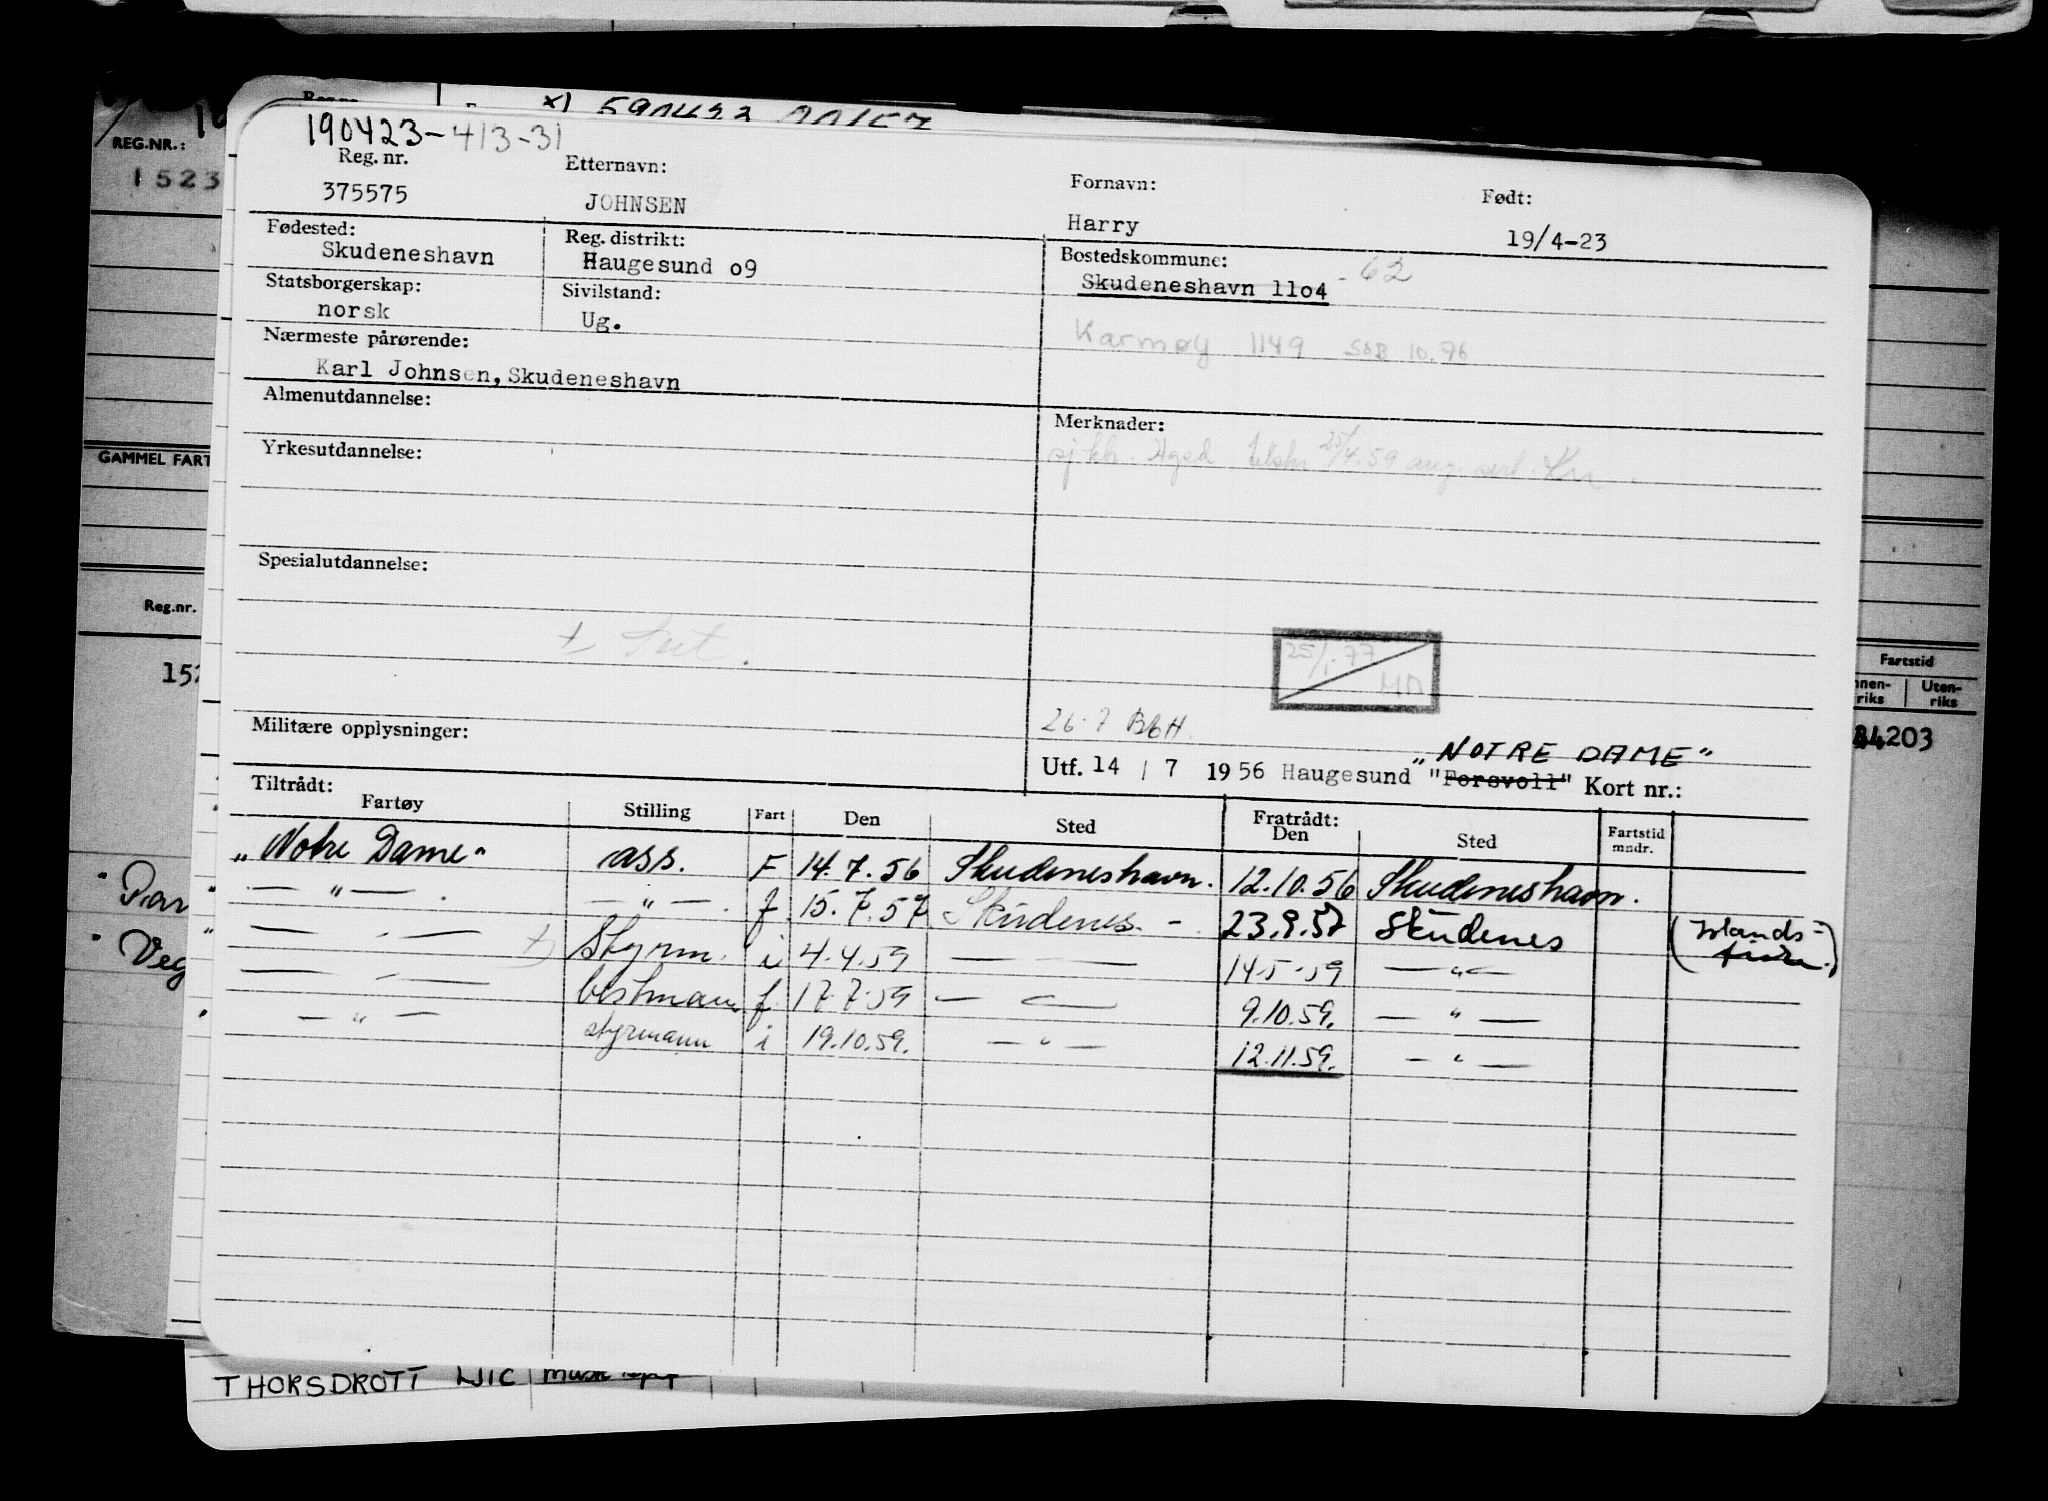 x) 590423 00157
190423-413-31
REG.NR.:
1523
Reg. nr. Etternavn: Fornavn: Født:
375575 JOHNSEN Harry 19/4-23
Fødested: Reg. distrikt: Bostedskommune:
Skudeneshavn Haugesund o9 Skudeneshavn 11o4 - 62
Statsborgerskap: Sivilstand:
norsk Ug.
Karmøy 1149 SØB 10.76
Nærmeste pårørende:
Karl Johnsen, Skudeneshavn
Almenutdannelse: Merknader:
25/4.59
Yrkesutdannelse:
GAMMEL FART
Spesialutdannelse:
Reg.nr.
25/1.77
Fartstid
Uten-
riks riks
152
26.7
Militære opplysninger:
34203
„NOTRE DAME"
Utf. 14 / 7 1956 Haugesund "Forsvoll" Kort nr.:
Tiltrådt: Fratrådt:
Fartøy Stilling Fart Den Sted Den Sted Fartstid mndr.
„Notre Dame" ass. F 14.7.56 Skudeneshavn. 12.10.56 Skudeneshavn.
— " — — " — f 15.7.57 Skudenes. - 23.9.57 Skudenes (Islands-
— " — Styrm. i 4.4.59 — 14.5.59 — " —
— " — bestmann f 17.7.59 — " — 9.10.59. — " —
— " — styrmann i 19.10.59. — " — 12.11.59. — " —
THORSDROTT